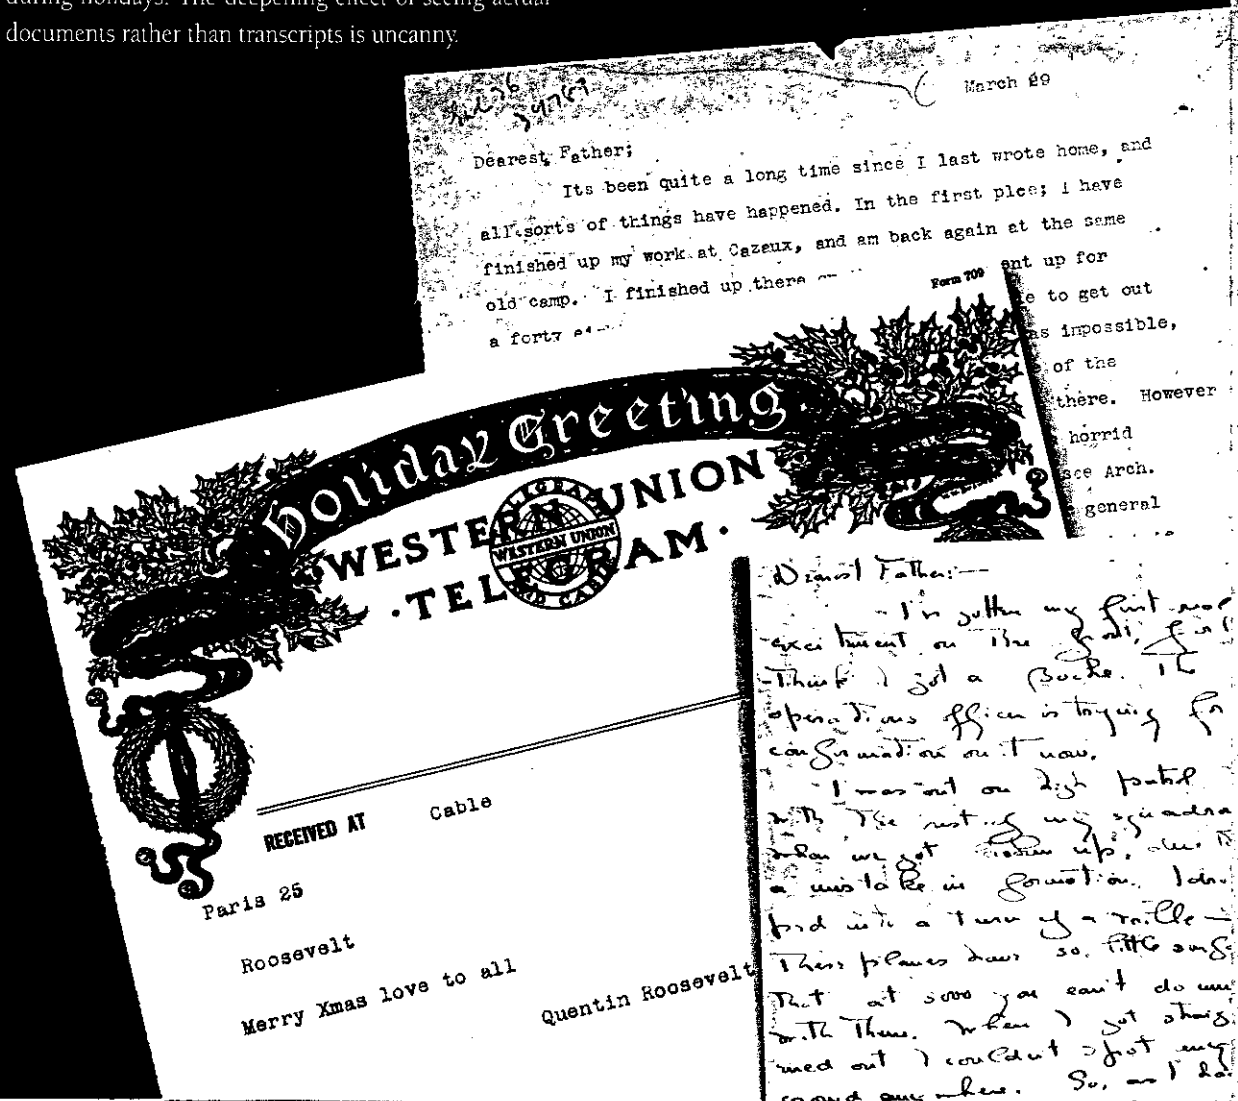 during holidays. The deepening effect of seeing actual
documents rather than transcripts is uncanny.
March 29
Dearest Father;
Its been quite a long time since I last wrote home, and
all sorts of things have happened. In the first plce; I have
finished up my work at Cazaux, and am back again at the same
old camp. I finished up there
ent up for
a forty
e to get out
as impossible,
of the
there. However
horrid
sce Arch.
general
Form 709
Holiday Greeting
WESTERN UNION
TELEGRAM
WESTERN UNION
RECEIVED AT Cable
Paris 25
Roosevelt
Merry Xmas love to all
Quentin Roosevelt
Dearest Father:—
I've gotten my first real
excitment on the front, for I
think I got a Boche. The
operations officer is trying for
confirmation on it now.
I was out on high patrol
with the rest of my squadro
when we got broken up, due to
a mistake in formation. I dro
pped into a turn of a vrille —
These planes have so little surf
that at 5000 you can't do mu
with them. When I got straig
tened out I couldn't spot my
crowd anywhere. So, as I had